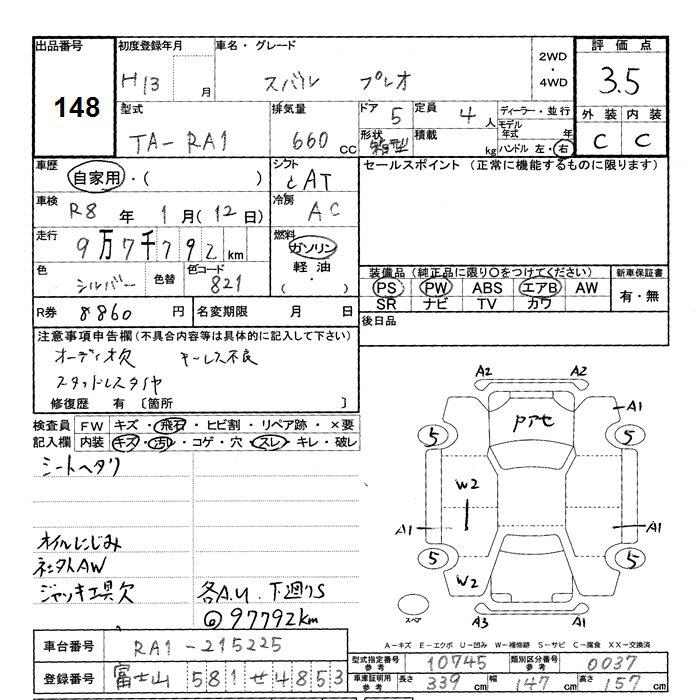 出品番号 初度登録年月 車名・グレード 評価点
148
H13 月 スバル プレオ 2WD・4WD 3.5
型式 排気量 ドア 5 定員 4人 ディーラー・並行 外装 内装
TA-RA1 660 CC 形状 積載 kg モデル年式 年 C C
ハンドル 左・右
車歴 自家用・( ) シフト AT セールスポイント (正常に機能するものに限ります)
車検 R8年 1月(12日) 冷房 AC
走行 9万7千792 km 燃料 ガソリン
軽油・( )
色 シルバー 色替 色コード 821 装備品(純正品に限り○をつけてください) 新車保証書
PS PW ABS エアB AW 有・無
SR ナビ TV カワ
R券 8860 円 名変期限 月 日 後日品
注意事項申告欄(不具合内容等は具体的に記入して下さい)
オーディオ欠 キーレス不良
スタッドレスタイヤ
修復歴 有 〔箇所 〕
検査員記入欄 FW キズ・飛石・ヒビ割・リペア跡・×要
内装 キズ・汚れ・コゲ・穴・スレ・キレ・破レ
シートヘタリ
オイルにじみ
社外AW
ジャッキ工具欠 各A.U. 下廻りS
97792km
A2 A2
A1
Pアセ
5 5
W2
A1 A1
5 5
W2
スペア A3 A1
A-キズ E-エクボ U-凹み W-補修跡 S-サビ C-腐食 XX-交換済
車台番号 RA1-215225
型式指定番号参考 10745 類別区分番号参考 0037
登録番号 富士山 581 せ 4853
車庫証明用参考 長さ 339 cm 幅 147 cm 高さ 157 cm